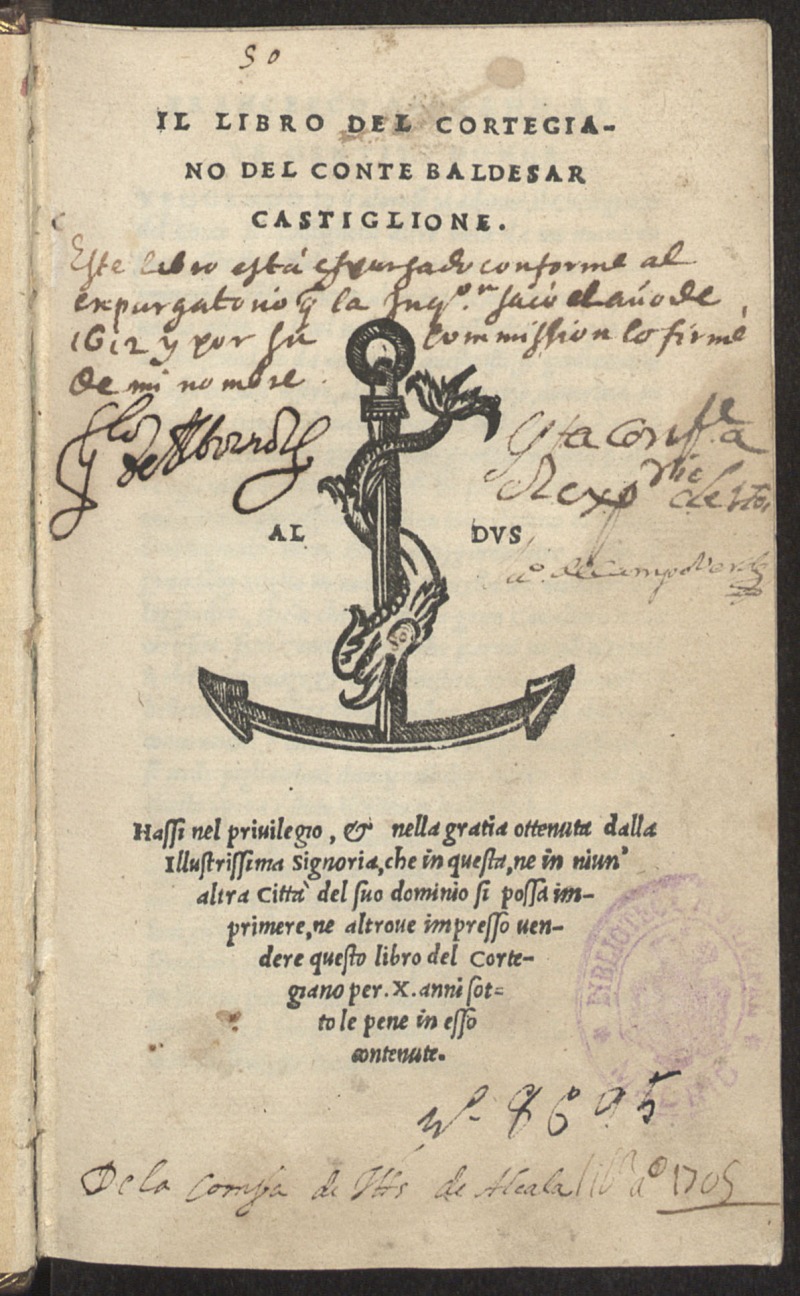 50
IL LIBRO DEL CORTEGIA-
NO DEL CONTE BALDESAR
CASTIGLIONE.
Este libro está espurgado conforme al
expurgatorio q̃ la Inqᵒⁿ. sacó el año de
1612 y por su commission lo firmé
de mi nombre.
AL DVS
de Campo Verde
Haſſi nel priuilegio, & nella gratia ottenuta dalla
Illuſtriſſima Signoria, che in queſta, ne in niun'
altra Città del ſuo dominio ſi poſſa im-
primere, ne altroue impreſſo uen-
dere queſto libro del Corte-
giano per .X. anni ſot-
to le pene in eſſo
contenute.
BIBLIOTEC
Nº 8695
De la Compª de Jhs de Alcala aº 1705